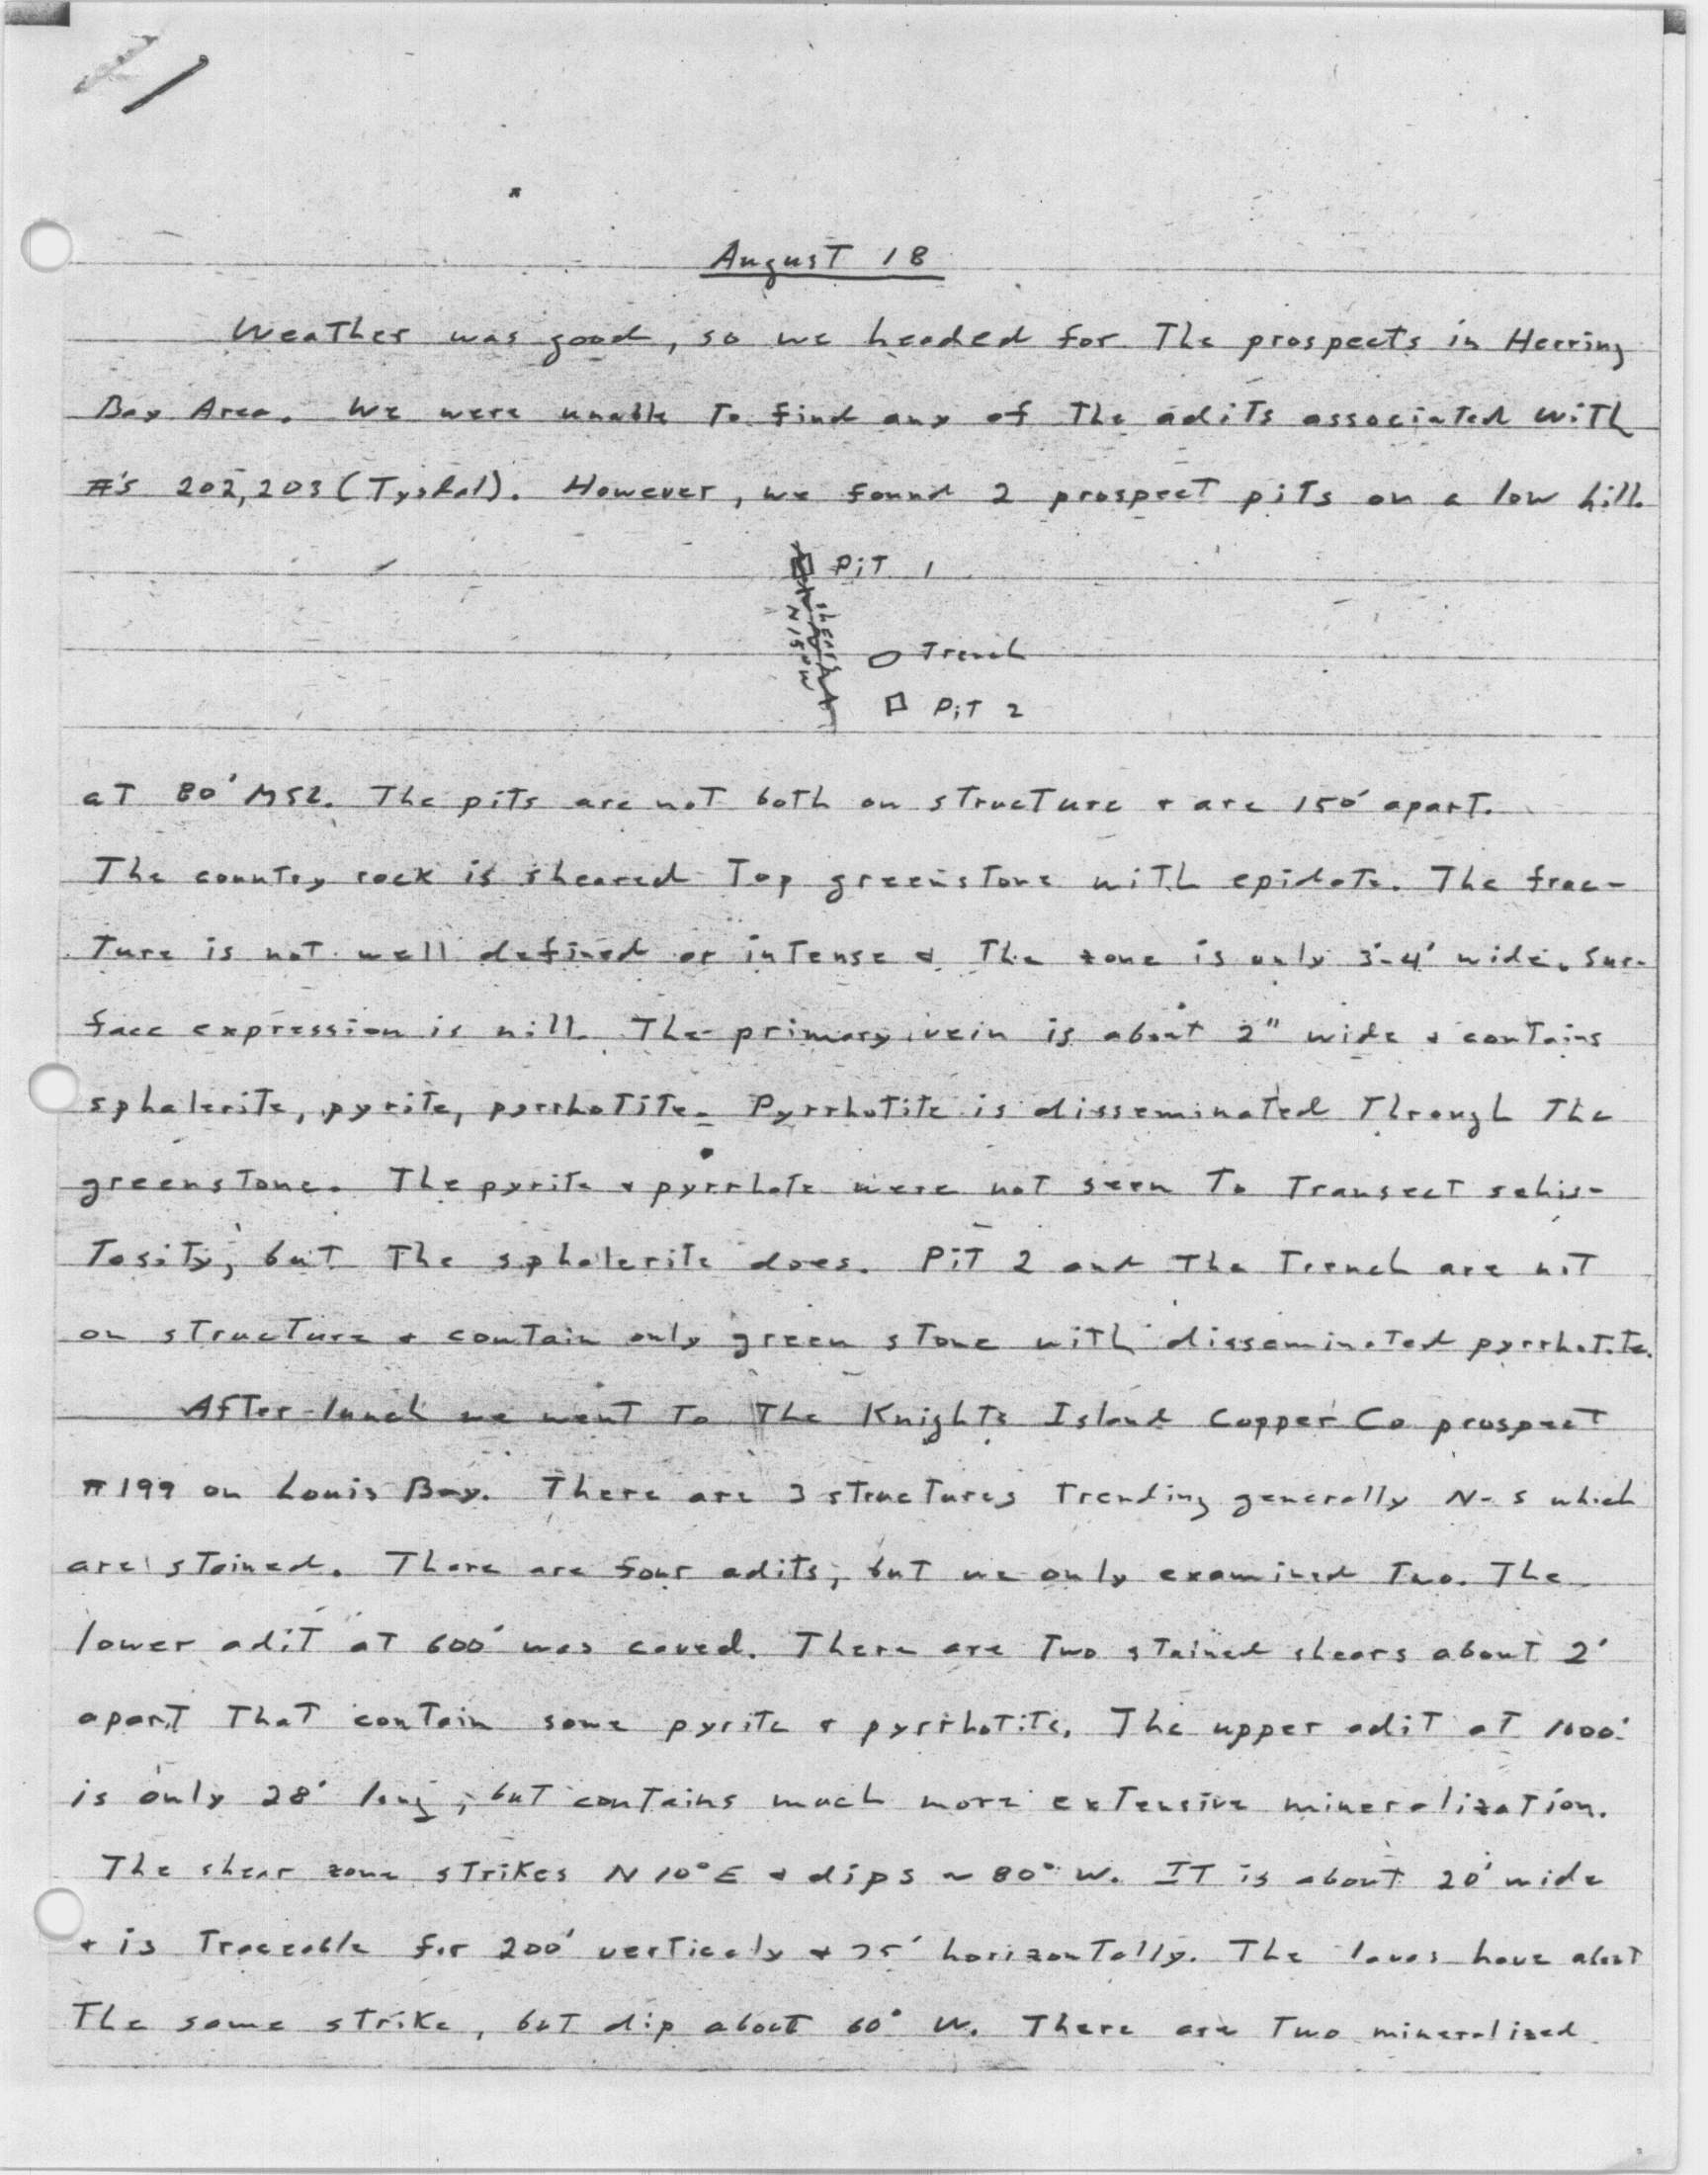 August 18
Weather was good, so we headed for The prospects in Herring
Bay Area. We were unable To find any of The adits associated with
#'s 202,203 (Tysdal). However, we found 2 prospect pits on a low hill.
PiT 1
shears
N15°W
Trench
PiT 2
at 80' MSL. The pits are not both on structure + are 150' apart.
The country rock is sheared Top greenstone with epidote. The frac-
ture is not well defined or intense & The zone is only 3'-4' wide. Sur-
face expression is nill. The primary vein is about 2" wide & contains
sphalerite, pyrite, pyrrhotite. Pyrrhotite is disseminated Through The
greenstone. The pyrite & pyrrhote were not seen To Transect schis-
Tosity, but The sphalerite does. PiT 2 and The Trench are not
on structure & contain only green stone with disseminated pyrrhotite.
After lunch we went To The Knights Island Copper Co prospect
#199 on Louis Bay. There are 3 structures Trending generally N-S which
are stained. There are four adits, but we only examined Two. The
lower adit at 600' was caved. There are Two stained shears about 2'
apart That contain some pyrite & pyrrhotite. The upper adit at 1000'
is only 28' long, but contains much more extensive mineralization.
The shear zone strikes N 10° E & dips ~ 80° W. IT is about 20' wide
+ is Traceable for 200' verticaly & 75' horizontally. The lavas have about
The same strike, but dip about 60° W. There are Two mineralized